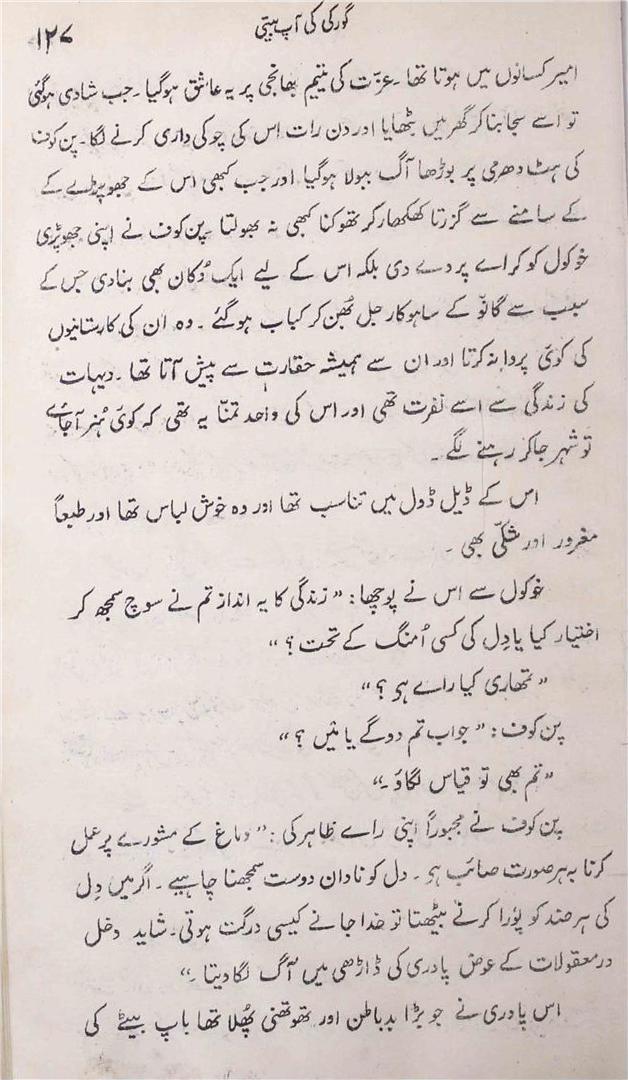 گورکی کی آپ بیتی
۱۲۷
امیر کسانوں میں ہوتا تھا۔ عزّت کی یتیم بھانجی پر یہ عاشق ہوگیا۔ جب شادی ہوگئی
تو اسے سجا بنا کر گھر میں بٹھایا اور دن رات اس کی چوکی داری کرنے لگا۔ پن کوف
کی ہٹ دھرمی پر بوڑھا آگ ببولا ہوگیا اور جب کبھی اس کے جھوپڑے کے
کے سامنے سے گزرتا کھکھار کر تھوکنا کبھی نہ بھولتا۔ پن کوف نے اپنی جھوپڑی
خوکول کو کراے پر دے دی بلکہ اس کے لیے ایک دُکان بھی بنا دی جس کے
سبب سے گانوّ کے ساہوکار جل بھُن کر کباب ہوگئے۔ وہ ان کی کارستانیوں
کی کوئی پروا نہ کرتا اور ان سے ہمیشہ حقارت سے پیش آتا تھا۔ دیہات
کی زندگی سے اسے نفرت تھی اور اس کی واحد تمنّا یہ تھی کہ کوئی ہُنر آجاے
تو شہر جاکر رہنے لگے۔
اس کے ڈیل ڈول میں تناسب تھا اور وہ خوش لباس تھا اور طبعاً
مغرور اور شکّی بھی۔
خوکول سے اس نے پوچھا: ”زندگی کا یہ انداز تم نے سوچ سمجھ کر
اختیار کیا یا دِل کی کسی اُمنگ کے تحت؟“
”تمھاری کیا راے ہو؟“
پن کوف: ”جواب تم دوگے یا مَیں؟“
”تم بھی تو قیاس لگاؤ۔“
پن کوف نے مجبوراً اپنی راے ظاہر کی: ”دماغ کے مشورے پر عمل
کرنا بہ ہر صورت صائب ہو۔ دل کو نادان دوست سمجھنا چاہیے۔ اگر میں دِل
کی ہر ضد کو پُورا کرنے بیٹھتا تو خدا جانے کیسی درگت ہوتی۔ شاید دخل
در معقولات کے عوض پادری کی ڈاڑھی میں آگ لگا دیتا۔“
اس پادری نے جو بڑا بدباطن اور تھوتھنی پھُلا تھا باپ بیٹے کی